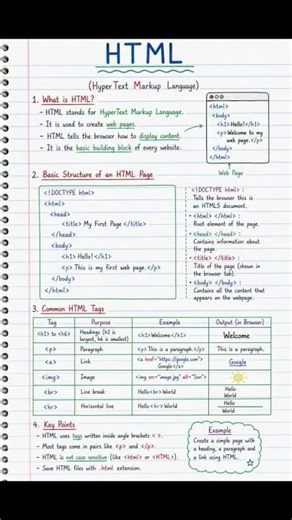 HTML
(HyperText Markup Language)
1. What is HTML?
- HTML stands for HyperText Markup Language.
- It is used to create web pages.
- HTML tells the browser how to display content.
- It is the basic building block of every website.
<html>
<body>
<h1>Hello!</h1>
<p>Welcome to my
web page.</p>
</body>
</html>
Web Page
2. Basic Structure of an HTML Page
<!DOCTYPE html>
<html>
<head>
<title> My First Page </title>
</head>
<body>
<h1> Hello! </h1>
<p> This is my first web page. </p>
</body>
</html>
• <!DOCTYPE html> :
Tells the browser this is
an HTML5 document.
• <html> </html> :
Root element of the page.
• <head> </head> :
Contains information about
the page.
• <title> </title> :
Title of the page (shown in
the browser tab).
• <body> </body> :
Contains all the content that
appears on the webpage.
3. Common HTML Tags
Tag Purpose Example Output (in Browser)
<h1> to <h6> Headings (h1 is largest, h6 is smallest) <h1>Welcome</h1> Welcome
<p> Paragraph <p>This is a paragraph.</p> This is a paragraph.
<a> Link <a href="https://google.com"> Google</a> Google
<img> Image <img src="image.jpg" alt="Sun">
<br> Line break Hello<br> World Hello World
<hr> Horizontal line Hello <hr> World Hello World
4. Key Points
- HTML uses tags written inside angle brackets < >.
- Most tags come in pairs like <p> and </p>.
- HTML is not case sensitive (like <html> or <HTML>).
- Save HTML files with .html extension.
Example
Create a simple page with
a heading, a paragraph and
a link using HTML.